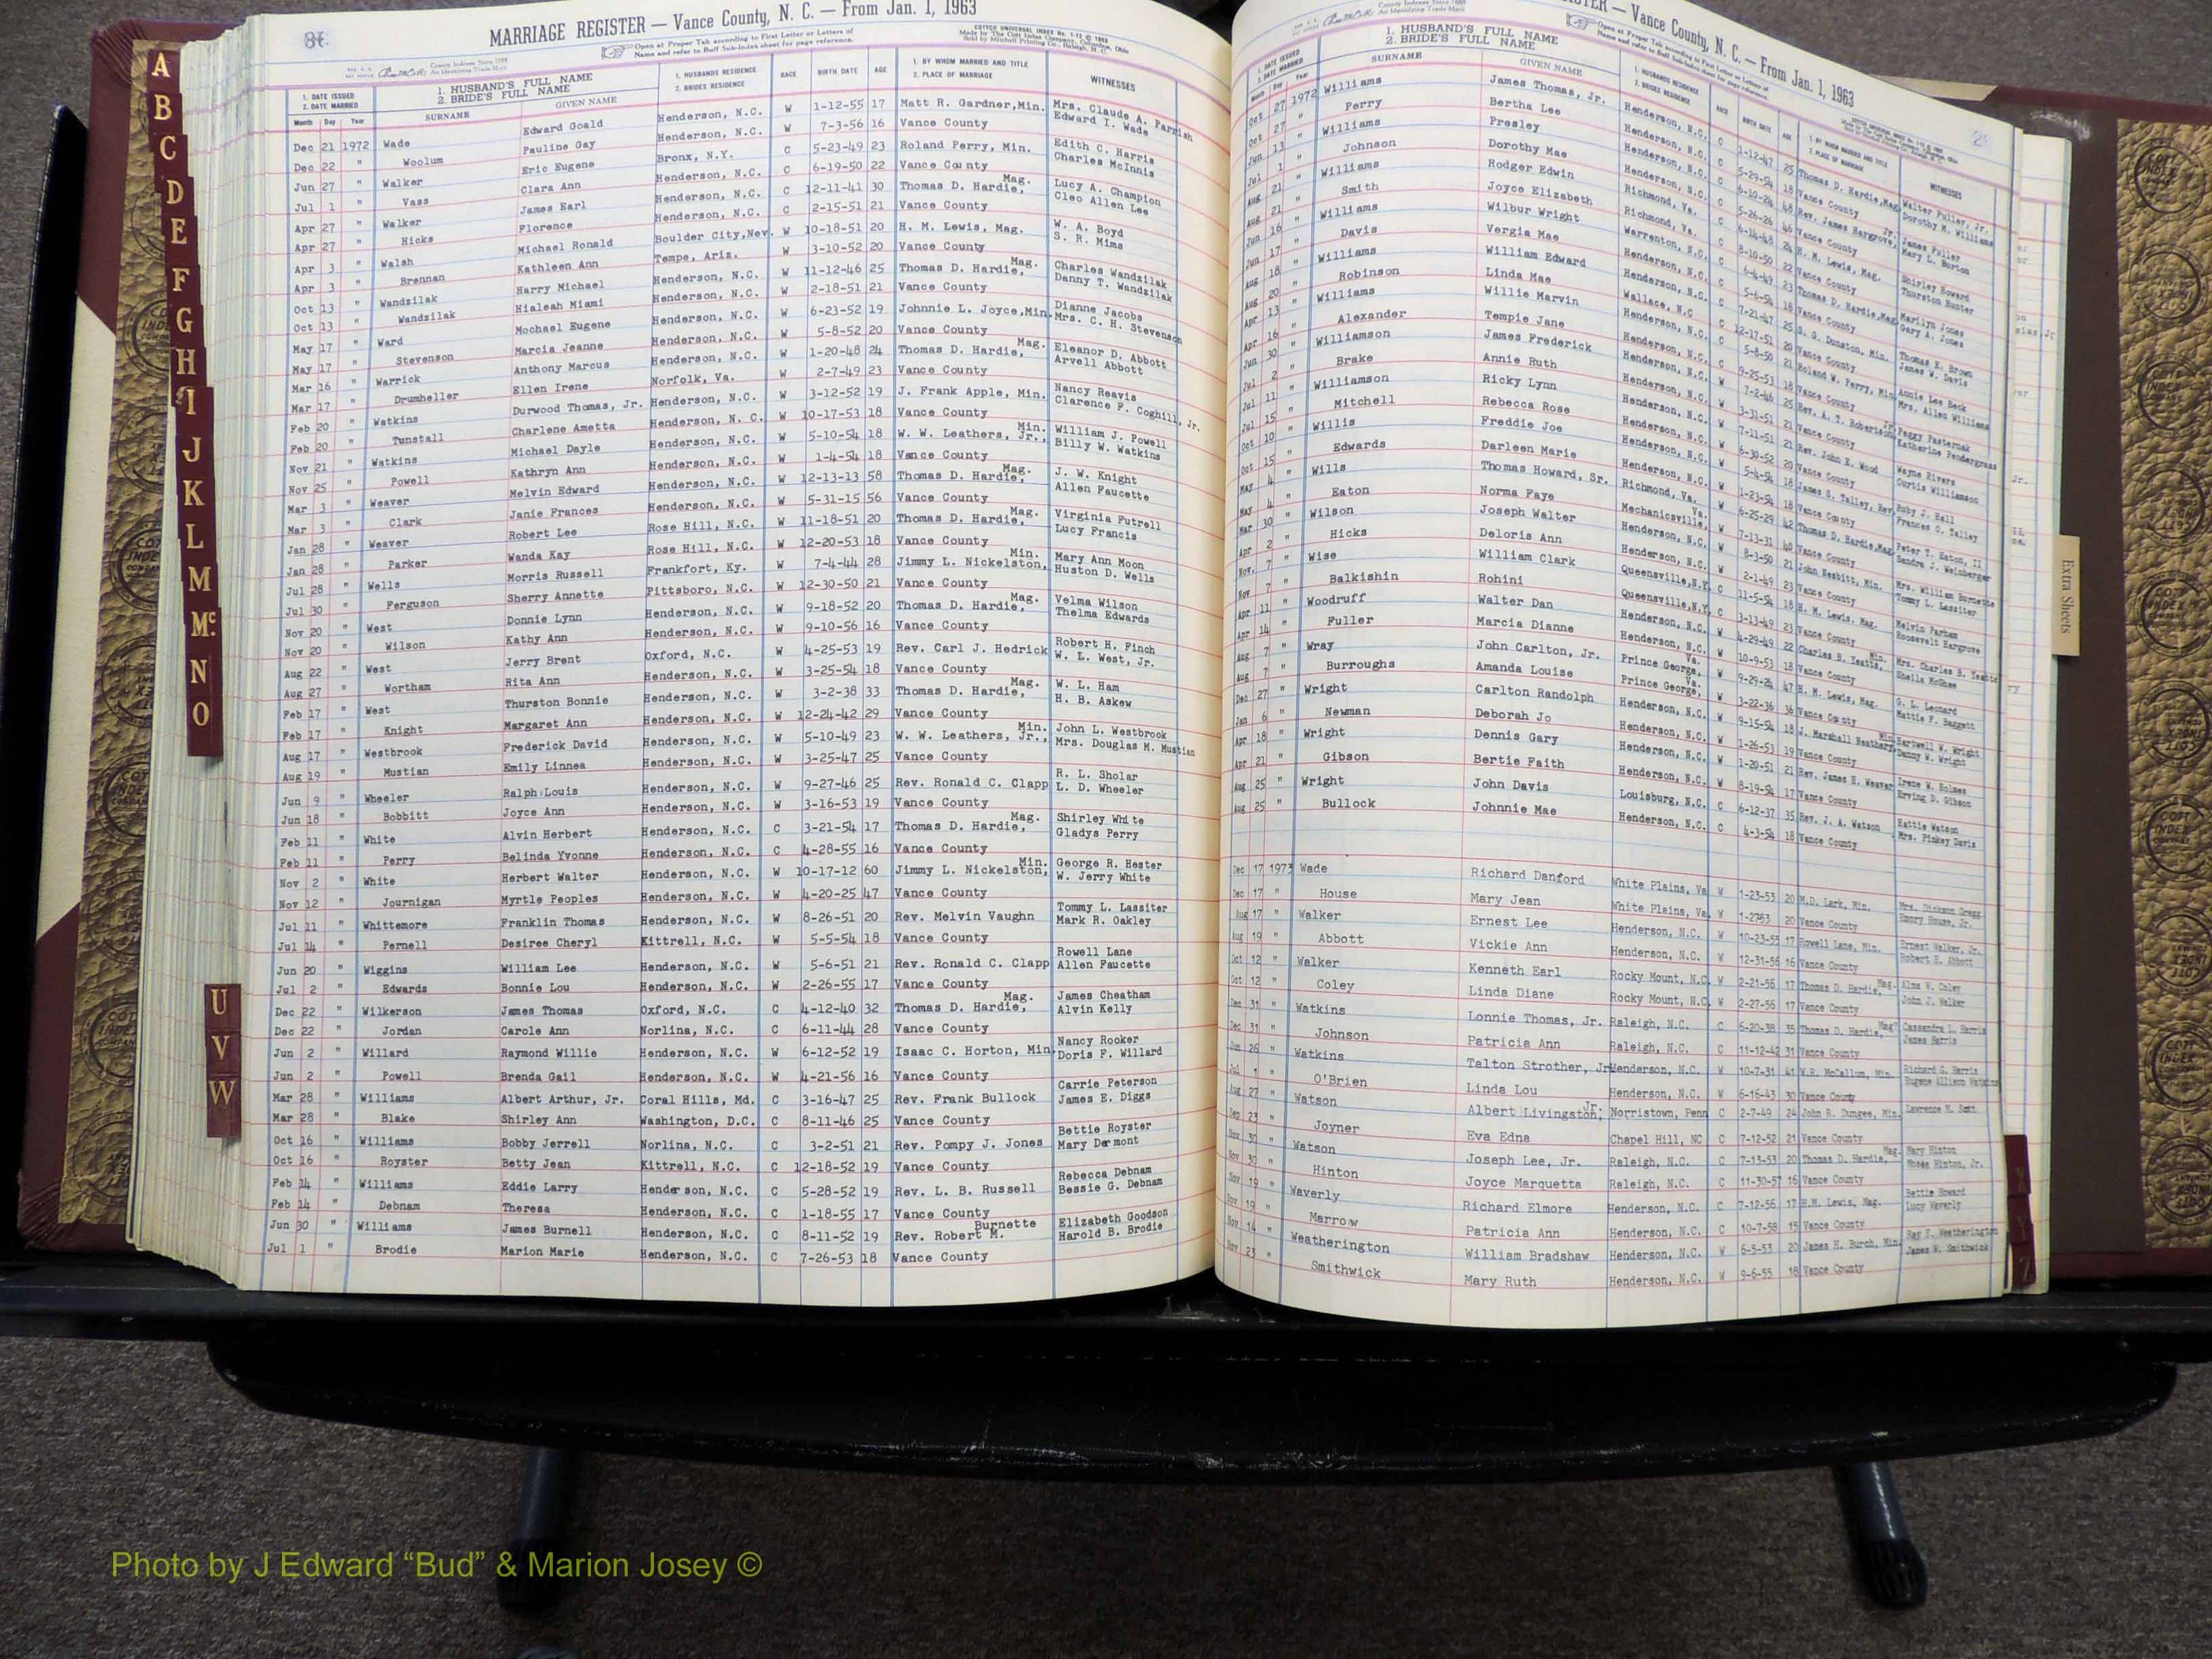 86
MARRIAGE REGISTER — Vance County, N. C. — From Jan. 1, 1963
Open at Proper Tab according to First Letter or Letters of
Name and refer to Buff Sub-Index sheet for page reference.
1. DATE ISSUED 2. DATE MARRIED 1. HUSBAND'S FULL NAME 2. BRIDE'S FULL NAME 1. HUSBANDS RESIDENCE 2. BRIDES RESIDENCE RACE BIRTH DATE AGE 1. BY WHOM MARRIED AND TITLE 2. PLACE OF MARRIAGE WITNESSES
Month Day Year SURNAME GIVEN NAME
Dec 21 1972 Wade Edward Goald Henderson, N.C. W 1-12-55 17 Matt R. Gardner,Min. Mrs. Claude A. Parrish
Dec 22 " Woolum Pauline Gay Henderson, N.C. W 7-3-56 16 Vance County Edward I. Wade
Jun 27 " Walker Eric Eugene Bronx, N.Y. C 5-23-49 23 Roland Perry, Min. Edith C. Harris
Jul 1 " Vass Clara Ann Henderson, N.C. C 6-19-50 22 Vance County Charles McInnis
Apr 27 " Walker James Earl Henderson, N.C. C 12-11-41 30 Thomas D. Hardie, Mag. Lucy A. Champion
Apr 27 " Hicks Florence Henderson, N.C. C 2-15-51 21 Vance County Cleo Allen Lee
Apr 3 " Walsh Michael Ronald Boulder City,Nev. W 10-18-51 20 H. M. Lewis, Mag. W. A. Boyd
Apr 3 " Brennan Kathleen Ann Tempe, Ariz. W 3-10-52 20 Vance County S. R. Mims
Oct 13 " Wandzilak Harry Michael Henderson, N.C. W 11-12-46 25 Thomas D. Hardie, Mag. Charles Wandzilak
Oct 13 " Wandzilak Hialeah Miami Henderson, N.C. W 2-18-51 21 Vance County Danny T. Wandzilak
May 17 " Ward Mochael Eugene Henderson, N.C. W 6-23-52 19 Johnnie L. Joyce,Min. Dianne Jacobs
May 17 " Stevenson Marcia Jeanne Henderson, N.C. W 5-8-52 20 Vance County Mrs. C. H. Stevenson
Mar 16 " Warrick Anthony Marcus Henderson, N.C. W 1-20-48 24 Thomas D. Hardie, Mag. Eleanor D. Abbott
Mar 17 " Drumheller Ellen Irene Norfolk, Va. W 2-7-49 23 Vance County Arvell Abbott
Feb 20 " Watkins Durwood Thomas, Jr. Henderson, N.C. W 3-12-52 19 J. Frank Apple, Min. Nancy Reavis
Feb 20 " Tunstall Charlene Ametta Henderson, N. C. W 10-17-53 18 Vance County Clarence F. Coghill, Jr.
Nov 21 " Watkins Michael Dayle Henderson, N.C. W 5-10-54 18 W. W. Leathers, Jr., Min. William J. Powell
Nov 25 " Powell Kathryn Ann Henderson, N.C. W 1-4-54 18 Vance County Billy W. Watkins
Mar 3 " Weaver Melvin Edward Henderson, N.C. W 12-13-13 58 Thomas D. Hardie, Mag. J. W. Knight
Mar 3 " Clark Janie Frances Henderson, N.C. W 5-31-15 56 Vance County Allen Faucette
Jan 28 " Weaver Robert Lee Rose Hill, N.C. W 11-18-51 20 Thomas D. Hardie, Mag. Virginia Futrell
Jan 28 " Parker Wanda Kay Rose Hill, N.C. W 12-20-53 18 Vance County Lucy Francis
Jul 28 " Wells Morris Russell Frankfort, Ky. W 7-4-44 28 Jimmy L. Nickelston, Min. Mary Ann Moon
Jul 30 " Ferguson Sherry Annette Pittsboro, N.C. W 12-30-50 21 Vance County Huston D. Wells
Nov 20 " West Donnie Lynn Henderson, N.C. W 9-18-52 20 Thomas D. Hardie, Mag. Velma Wilson
Nov 20 " Wilson Kathy Ann Henderson, N.C. W 9-10-56 16 Vance County Thelma Edwards
Aug 22 " West Jerry Brent Oxford, N.C. W 4-25-53 19 Rev. Carl J. Hedrick Robert H. Finch
Aug 27 " Wortham Rita Ann Henderson, N.C. W 3-25-54 18 Vance County W. L. West, Jr.
Feb 17 " West Thurston Bonnie Henderson, N.C. W 3-2-38 33 Thomas D. Hardie, Mag. W. L. Ham
Feb 17 " Knight Margaret Ann Henderson, N.C. W 12-24-42 29 Vance County H. B. Askew
Aug 17 " Westbrook Frederick David Henderson, N.C. W 5-10-49 23 W. W. Leathers, Jr., Min. John L. Westbrook
Aug 19 " Mustian Emily Linnea Henderson, N.C. W 3-25-47 25 Vance County Mrs. Douglas M. Mustian
Jun 9 " Wheeler Ralph Louis Henderson, N.C. W 9-27-46 25 Rev. Ronald C. Clapp R. L. Sholar
Jun 18 " Bobbitt Joyce Ann Henderson, N.C. W 3-16-53 19 Vance County L. D. Wheeler
Feb 11 " White Alvin Herbert Henderson, N.C. C 3-21-54 17 Thomas D. Hardie, Mag. Shirley White
Feb 11 " Perry Belinda Yvonne Henderson, N.C. C 4-28-55 16 Vance County Gladys Perry
Nov 2 " White Herbert Walter Henderson, N.C. W 10-17-12 60 Jimmy L. Nickelston, Min. George R. Hester
Nov 12 " Journigan Myrtle Peoples Henderson, N.C. W 4-20-25 47 Vance County W. Jerry White
Jul 11 " Whittemore Franklin Thomas Henderson, N.C. W 8-26-51 20 Rev. Melvin Vaughn Tommy L. Lassiter
Jul 14 " Pernell Desiree Cheryl Kittrell, N.C. W 5-5-54 18 Vance County Mark R. Oakley
Jun 20 " Wiggins William Lee Henderson, N.C. W 5-6-51 21 Rev. Ronald C. Clapp Rowell Lane
Jul 2 " Edwards Bonnie Lou Henderson, N.C. W 2-26-55 17 Vance County Allen Faucette
Dec 22 " Wilkerson James Thomas Oxford, N.C. C 4-12-40 32 Thomas D. Hardie, Mag. James Cheatham
Dec 22 " Jordan Carole Ann Norlina, N.C. C 6-11-44 28 Vance County Alvin Kelly
Jun 2 " Willard Raymond Willie Henderson, N.C. W 6-12-52 19 Isaac C. Horton, Min. Nancy Rooker
Jun 2 " Powell Brenda Gail Henderson, N.C. W 4-21-56 16 Vance County Doris F. Willard
Mar 28 " Williams Albert Arthur, Jr. Coral Hills, Md. C 3-16-47 25 Rev. Frank Bullock Carrie Peterson
Mar 28 " Blake Shirley Ann Washington, D.C. C 8-11-46 25 Vance County James E. Diggs
Oct 16 " Williams Bobby Jerrell Norlina, N.C. C 3-2-51 21 Rev. Pompy J. Jones Bettie Royster
Oct 16 " Royster Betty Jean Kittrell, N.C. C 12-18-52 19 Vance County Mary Dermont
Feb 14 " Williams Eddie Larry Henderson, N.C. C 5-28-52 19 Rev. L. B. Russell Rebecca Debnam
Feb 14 " Debnam Theresa Henderson, N.C. C 1-18-55 17 Vance County Bessie G. Debnam
Jun 30 " Williams James Burnell Henderson, N.C. C 8-11-52 19 Rev. Robert M. Burnette Elizabeth Goodson
Jul 1 " Brodie Marion Marie Henderson, N.C. C 7-26-53 18 Vance County Harold B. Brodie
A
B
C
D
E
F
G
H
I
J
K
L
M
Mc
N
O
U
V
W
Vance County, N. C. — From Jan. 1, 1963
1. HUSBAND'S FULL NAME
2. BRIDE'S FULL NAME
SURNAME GIVEN NAME
Oct 27 1972 Williams James Thomas, Jr. Henderson, N.C. C 1-12-47 25 Thomas D. Hardie,Mag. Walter Fuller, Jr.
Oct 27 " Perry Bertha Lee Henderson, N.C. C 5-29-54 18 Vance County Dorothy M. Williams
Jun 13 " Williams Presley Henderson, N.C. C 6-10-24 48 Rev. James Hargrove, Jr. James Fuller
Jul 1 " Johnson Dorothy Mae Henderson, N.C. C 5-26-26 46 Vance County Mary L. Burton
Aug 21 " Williams Rodger Edwin Richmond, Va. C 6-14-48 24 H. M. Lewis, Mag. Shirley Howard
Aug 21 " Smith Joyce Elizabeth Richmond, Va. C 8-10-50 22 Vance County Thurston Hunter
Jun 16 " Williams Wilbur Wright Warrenton, N.C. C 6-4-49 23 Thomas D. Hardie,Mag. Marilyn Jones
Jun 17 " Davis Vergia Mae Henderson, N.C. C 5-6-54 18 Vance County Gary A. Jones
Aug 18 " Williams William Edward Henderson, N.C. C 7-21-47 25 Dunston, Min. Thomas E. Brown
Aug 20 " Robinson Linda Mae Henderson, N.C. C 12-17-51 20 Vance County James W. Davis
Apr 13 " Williams Willie Marvin Wallace, N.C C 5-8-50 21 Roland W. Perry, Min. Annie Lee Beck
Apr 16 " Alexander Tempie Jane Henderson, N.C. C 9-25-53 18 Vance County Mrs. Allen Williams
Jun 30 " Williamson James Frederick Henderson, N.C. W 7-2-46 25 Rev. A. T. Robertson, Jr. Peggy Pasternak
Jul 2 " Brake Annie Ruth Henderson, N.C. W 3-31-51 21 Vance County Katherine Pendergrass
Jul 11 " Williamson Ricky Lynn Henderson, N.C. W 7-11-51 21 Rev. John E. Wood Wayne Rivers
Jul 15 " Mitchell Rebecca Rose Henderson, N.C. W 6-30-52 20 Vance County Curtis Williamson
Oct 10 " Willis Freddie Joe Henderson, N.C. W 5-4-54 18 James S. Talley, Rev. Ruby J. Hall
Oct 15 " Edwards Darleen Marie Henderson, N.C. W 1-23-54 18 Vance County Frances O. Talley
May 4 " Wills Thomas Howard, Sr. Richmond, Va. W 6-25-29 42 Thomas D. Hardie,Mag. Peter T. Eaton, II
May 4 " Eaton Norma Faye Mechanicsville, Va. W 7-13-31 40 Vance County Sandra J. Weinberger
Mar 30 " Wilson Joseph Walter Henderson, N.C. W 8-3-50 21 John Nesbitt, Min. Mrs. William Burnette
Apr 2 " Hicks Deloris Ann Henderson, N.C. W 2-1-49 23 Vance County Tommy L. Lassiter
Nov. 7 " Wise William Clark Queensville,N.Y. C 11-5-54 18 H. M. Lewis, Mag. Melvin Parham
Nov 7 " Balkishin Rohini Queensville,N.Y. C 3-13-49 23 Vance County Roosevelt Hargrove
Apr 11 " Woodruff Walter Dan Henderson, N.C. W 4-29-49 22 Charles B. Yeatts, Min. Mrs. Charles B. Yeatts
Apr 14 " Fuller Marcia Dianne Henderson, N.C. W 10-9-53 18 Vance County Sheila McGhee
Aug 7 " Wray John Carlton, Jr. Prince George, Va. W 9-29-24 47 H. M. Lewis, Mag. G. L. Leonard
Aug 7 " Burroughs Amanda Louise Prince George, Va. W 3-22-36 36 Vance County Mattie F. Baggett
Dec 27 " Wright Carlton Randolph Henderson, N.C. W 9-15-54 18 J. Marshall Neathery, Min. Hartwell W. Wright
Jan 6 " Newman Deborah Jo Henderson, N.C. W 1-26-53 19 Vance County Danny W. Wright
Apr 18 " Wright Dennis Gary Henderson, N.C. W 1-20-51 21 Rev. James H. Weaver Irene W. Holmes
Apr 21 " Gibson Bertie Faith Henderson, N.C. W 8-19-54 17 Vance County Erving D. Gibson
Aug 25 " Wright John Davis Louisburg, N.C. C 6-12-37 35 Rev. J. A. Watson Hattie Watson
Aug 25 " Bullock Johnnie Mae Henderson, N.C. C 4-3-54 18 Vance County Mrs. Pinkey Davis
Dec 17 1973 Wade Richard Danford White Plains, Va W 1-23-53 20 M.D. Lark, Min. Mrs. Dickson Gregg
Dec 17 " House Mary Jean White Plains, Va. W 1-2753 20 Vance County Emory House, Jr.
Aug 17 " Walker Ernest Lee Henderson, N.C. W 10-23-55 17 Rowell Lane, Min. Ernest Walker, Jr.
Aug 19 " Abbott Vickie Ann Henderson, N.C. W 12-31-56 16 Vance County Robert E. Abbott
Oct 12 " Walker Kenneth Earl Rocky Mount, N.C. W 2-21-56 17 Thomas D. Hardie, Mag. Alma W. Coley
Oct 12 " Coley Linda Diane Rocky Mount, N.C. W 2-27-56 17 Vance County John J. Walker
Dec 31 " Watkins Lonnie Thomas, Jr. Raleigh, N.C. C 6-20-38 35 Thomas D. Hardie, Mag. Cassandra L. Harris
Dec 31 " Johnson Patricia Ann Raleigh, N.C. C 11-12-42 31 Vance County James Harris
Jun 26 " Watkins Talton Strother, Jr. Henderson, N.C. W 10-7-31 41 W.R. McCallum, Min. Richard G. Harris
Jul 1 " O'Brien Linda Lou Henderson, N.C. W 6-16-43 30 Vance County Eugene Allison Watkins
Aug 27 " Watson Albert Livingston, Jr. Norristown, Penn C 2-7-49 24 John R. Dungee, Min. Lawrence H.
Sep 23 " Joyner Eva Edna Chapel Hill, NC C 7-12-52 21 Vance County
Nov 30 " Watson Joseph Lee, Jr. Raleigh, N.C. C 7-13-53 20 Thomas D. Hardie, Mag. Mary Hinton
Nov 30 " Hinton Joyce Marquetta Raleigh, N.C. C 11-30-57 16 Vance County Moses Hinton, Jr.
Nov 19 " Waverly Richard Elmore Henderson, N.C. C 7-12-56 17 H.M. Lewis, Mag. Bettie Howard
Nov 19 " Marrow Patricia Ann Henderson, N.C. C 10-7-58 15 Vance County Lucy Waverly
Nov 14 " Weatherington William Bradshaw Henderson, N.C. W 6-5-53 20 James H. Burch, Min. Ray E. Weatherington
Nov. 23 " Smithwick Mary Ruth Henderson, N.C. W 9-6-55 18 Vance County James W. Smithwick
Extra Sheets
Photo by J Edward “Bud” & Marion Josey ©